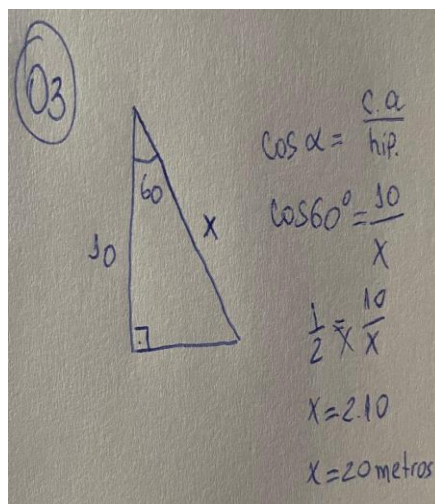 03
60
10
x
cos α = c.a / hip.
cos60° = 10 / x
1/2 = 10/x
x = 2.10
x = 20 metros